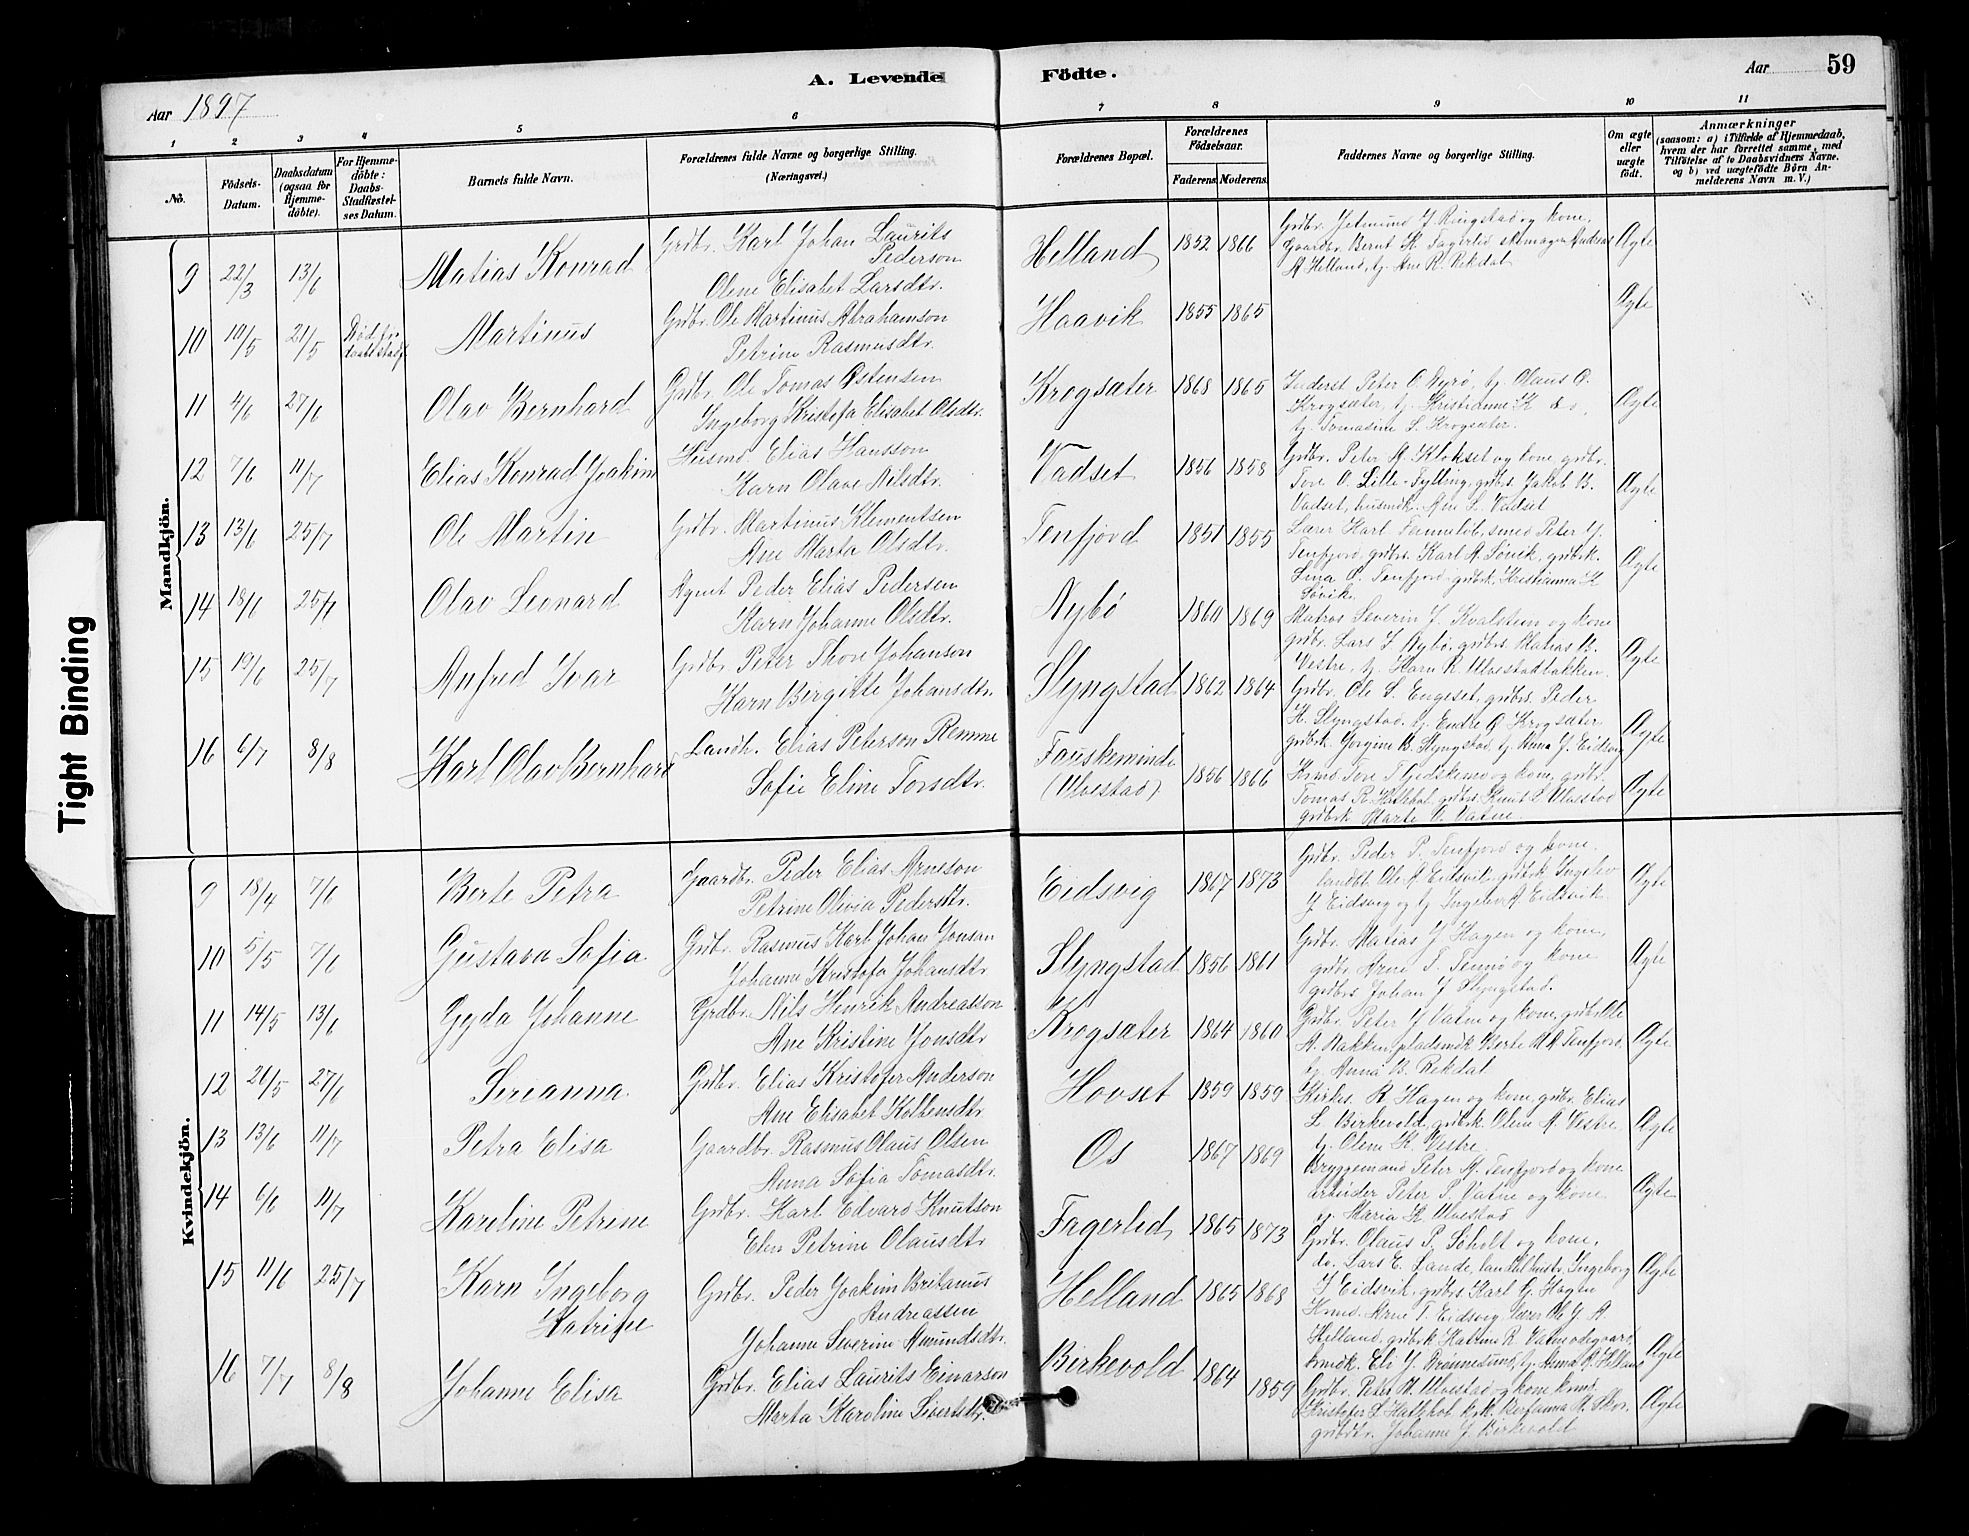 A. Levende Födte.
Aar 59
Aar 1897
1 2 3 4 5 6 7 8 9 10 11
No.
Födsels-Datum.
Daabsdatum (ogsaa for Hjemme-döbte).
For Hjemme-döbte: Daabs-Stadfæstel-ses Datum.
Barnets fulde Navn.
Forældrenes fulde Navne og borgerlige Stilling.
(Næringsvei.)
Forældrenes Bopæl.
Forældrenes Födselsaar.
Faderens. Moderens.
Faddernes Navne og borgerlige Stilling.
Om ægte eller uægte födt.
Anmærkninger
(saasom: a) i Tilfælde af Hjemmedaab, hvem der har forrettet samme, med Tilföielse af to Daabsvidners Navne, og b) ved uægtefödte Börn An-melderens Navn m. V.)
Tight Binding
Mandkjön.
9 22/3 13/6 Matias Konrad Grdbr. Karl Johan Laurits Pederson
Olene Elisabet Larsdtr. Helland 1852 1866
Grdbr. Jetmund J Ringstad og kone,
Gaardbr. Bernt K. Fagerlid skomager Andreas
A Helland, tj. Ane R. Rekdal Ægte
10 10/5 21/5 Martinus Grdbr. Ole Martinus Abrahamson
Petrine Rasmusdtr. Haavik 1855 1865 Ægte
11 4/6 27/6 Olav Bernhard Grdbr. Ole Tomas Østensen
Ingeborg Kristofa Elisabet Olsdtr. Krogsæter 1868 1865
Inderst Peter O. Dyrø, tj. Olaus O.
Krogsæter, tj. Kristianne K do,
tj. Tomasine L. Krogsæter. Ægte
12 7/6 11/7 Elias Konrad Joakim Husmd. Elias Hansson
Karn Olave Nilsdtr. Vadset 1856 1858
Grdbr. Peter A Klokset og kone, grdbr.
Tore O. Lille-Fylling, grdbrs. Jakob B.
Vadset, husmdk. Ane L. Vadset Ægte
13 13/6 25/7 Ole Martin Grdbr. Martinus Klementsen
Ane Marta Olsdtr. Tenfjord 1851 1855
Lærer Karl Tenneløb, smed Peter J.
Tenfjord, grdbrs. Karl A. Søvik, grdbrk.
Lina O. Tenfjord, grdbrk. Kristianna K
Søvik. Ægte
14 18/6 25/7 Olav Leonard Agent Peder Elias Pedersen
Karn Johanne Olsdtr. Nybø 1860 1869
Matros Severin J. Kvalstein og kone
grdbr. Lars J. Nybø, grdbrs. Matias B.
Vestre, tj. Karn R. Ulvestadbakken. Ægte
15 19/6 25/7 Anfred Ivar Grdbr. Peter Thore Johanson
Karn Bergitte Johansdtr. Slyngstad 1862 1864
Grdbr. Ole S. Engeset, grdbrs. Peder
K. Slyngstad, tj. Endre O Krogsæter
grdbrk. Gorgine B. Slyngstad, tj. Anna J. Eidsvig Ægte
16 6/7 8/8 Karl Olav Bernhard Landh. Elias Peterson Remme
Sofie Eline Torsdtr. Fauskeminde
(Ulvestad) 1856 1866
Kmd. Tore T Gjedskemo og kone, grdbr.
Tomas R. Hatlehol, grdbrs. Knut L Ulvestad
grdbrk Marte V. Vatne Ægte
Kvindekjön.
9 18/4 7/6 Berte Petra Gaardbr. Peder Elias Arneson
Petrine Olivia Pedersdtr. Eidsvig 1867 1873
Grdbr. Peder P. Tenfjord og kone
landbb. Ole A Eidsvik, grdbrk Ingelev
J Eidsvig og tj Ingelev A Eidsvik Ægte
10 5/5 7/6 Gustava Sofia Grdbr. Rasmus Karl Johan Jonsan
Johanna Kristofa Johansdtr Slyngstad 1856 1861
Grdbr. Matias J Hagen og kone,
grdbr. Arne T. Tennø og kone
grdbrs Johan J Slyngstad. Ægte
11 14/5 13/6 Gyda Johanne Grdbr. Nils Henrik Andreasson
Ane Kristine Jonsdtr Krogsæter 1864 1860
Grdbr. Peter J Vatne og kone, grdbr. Ole
A. Bakken, pladsmdk Berte M A Tenfjord,
tj. Anna B. Rekdal Ægte
12 21/5 27/6 Serianna Grdbr. Elias Kristofer Anderson
Ane Elisabet Koltensdtr Hovset 1859 1859
Kirkes. R Hagen og kone, grdbr. Elias
L Birkevold, grdbrk. Olena A Vestre
tj. Olena K. Vestre Ægte
13 13/6 11/7 Petra Elisa Gaardbr. Rasmus Olaus Olsen
Anna Sofia Tomasdtr. Os 1867 1869
Bryggemand Peter M. Tenfjord og kone
arbeider Peter P. Vatne og kone
tj. Maria K Ulvestad Ægte
14 6/6 11/7 Kareline Petrine Grdbr. Karl Edvard Knutson
Elen Petrine Olausdtr Fagerlid 1865 1873
Grdbr. Olaus P. Søholt og kone,
do. Lars E. Lande, Ingeborg
J Eidsvik, grdbrs Karl G. Hagen Ægte
15 11/6 25/7 Karn Ingeborg
Katrine Grdbr. Peder Joakim Britanus
Andreassen
Johanna Severine Amundsdtr. Helland 1865 1868
Kmd. Arne T. Eidsvig, lærer M. J. A
Helland, grdbrk Katrine R. Vatneødegaard,
brmdk. Eli J. Brønnesund, tj. Anna A. Helland Ægte
16 7/7 8/8 Johanne Elisa Grdbr. Elias Laurits Einarson
Marta Karoline Sivertsdtr. Birkevold 1864 1859
Grdbr. Peter A. Ulvestad og kone kmd.
Kristofer L Hatlehol
grdbdtr. Johanne J Birkevold Ægte